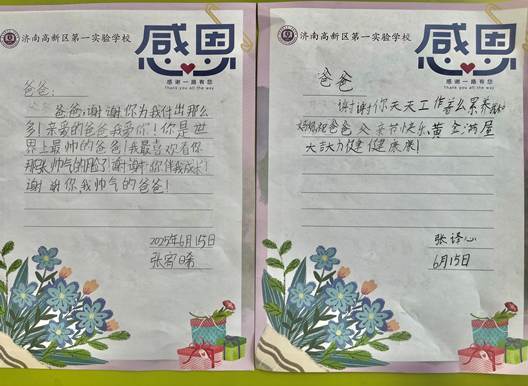 济南高新区第一实验学校
感恩
感谢一路有您
Thank you all the way
爸爸:
爸爸,谢谢你为我付出那么
多!亲爱的爸爸我爱你!你是世
界上最帅的爸爸!我最喜欢看你
那张帅气的脸了!谢谢你伴我成长!
谢谢你,我帅气的爸爸!
2025年6月15日
济南高新区第一实验学校
感恩
感谢一路有您
Thank you all the way
爸爸
谢谢你天天工作
爸爸父亲节快乐黄金满屋
健健康康!
张译心
6月15日